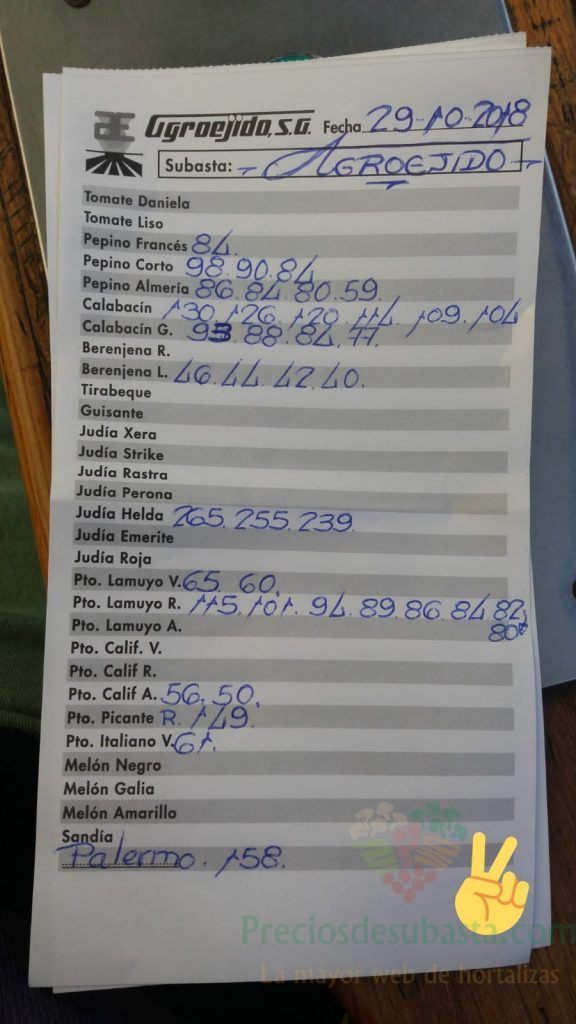 Agroejido, S.G. Fecha 29-10-2018
Subasta: - AGROEJIDO -
Tomate Daniela
Tomate Liso
Pepino Francés 84.
Pepino Corto 98.90.84
Pepino Almería 86.84.80.59.
Calabacín 130.126.120.114.109.104
Calabacín G. 93.88.84.77.
Berenjena R.
Berenjena L. 46.44.42.40.
Tirabeque
Guisante
Judía Xera
Judía Strike
Judía Rastra
Judía Perona
Judía Helda 265.255.239.
Judía Emerite
Judía Roja
Pto. Lamuyo V. 65.60.
Pto. Lamuyo R. 115.101.94.89.86.84.82.
80
Pto. Lamuyo A.
Pto. Calif. V.
Pto. Calif R.
Pto. Calif A. 56.50.
Pto. Picante R. 149.
Pto. Italiano V. 61.
Melón Negro
Melón Galia
Melón Amarillo
Sandía
Palermo. 158.
Preciosdesubasta.com
La mayor web de hortalizas